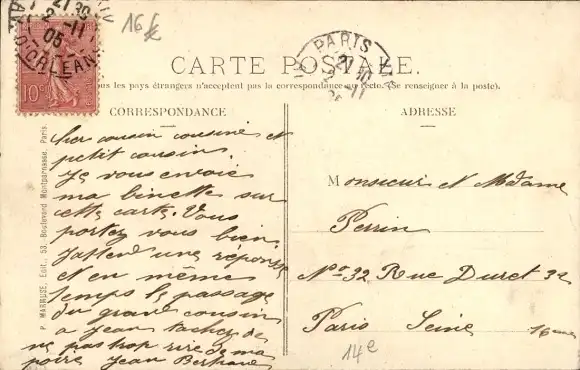 16
21 30
2 -11
05
D'ORLEANS
10c
PARIS
21 10
2 -11
CARTE POSTALE.
ous les pays étrangers n'acceptent pas la correspondance au recto. (Se renseigner à la poste).
CORRESPONDANCE
ADRESSE
P. MARMUSE, Edit., 53, Boulevard Montparnasse, Paris
Cher cousin cousine et
petit cousin.
Je vous envoie
ma binette sur
cette carte. Vous
portez vous bien
J'attend une réponse
et en même
temps le passage
du grand cousin
a Jean tachez de
ne pas trop rire de ma
poire Jean
Monsieur et Madame
Perrin
No 32 Rue Duret 32
Paris Seine 16eme
14e